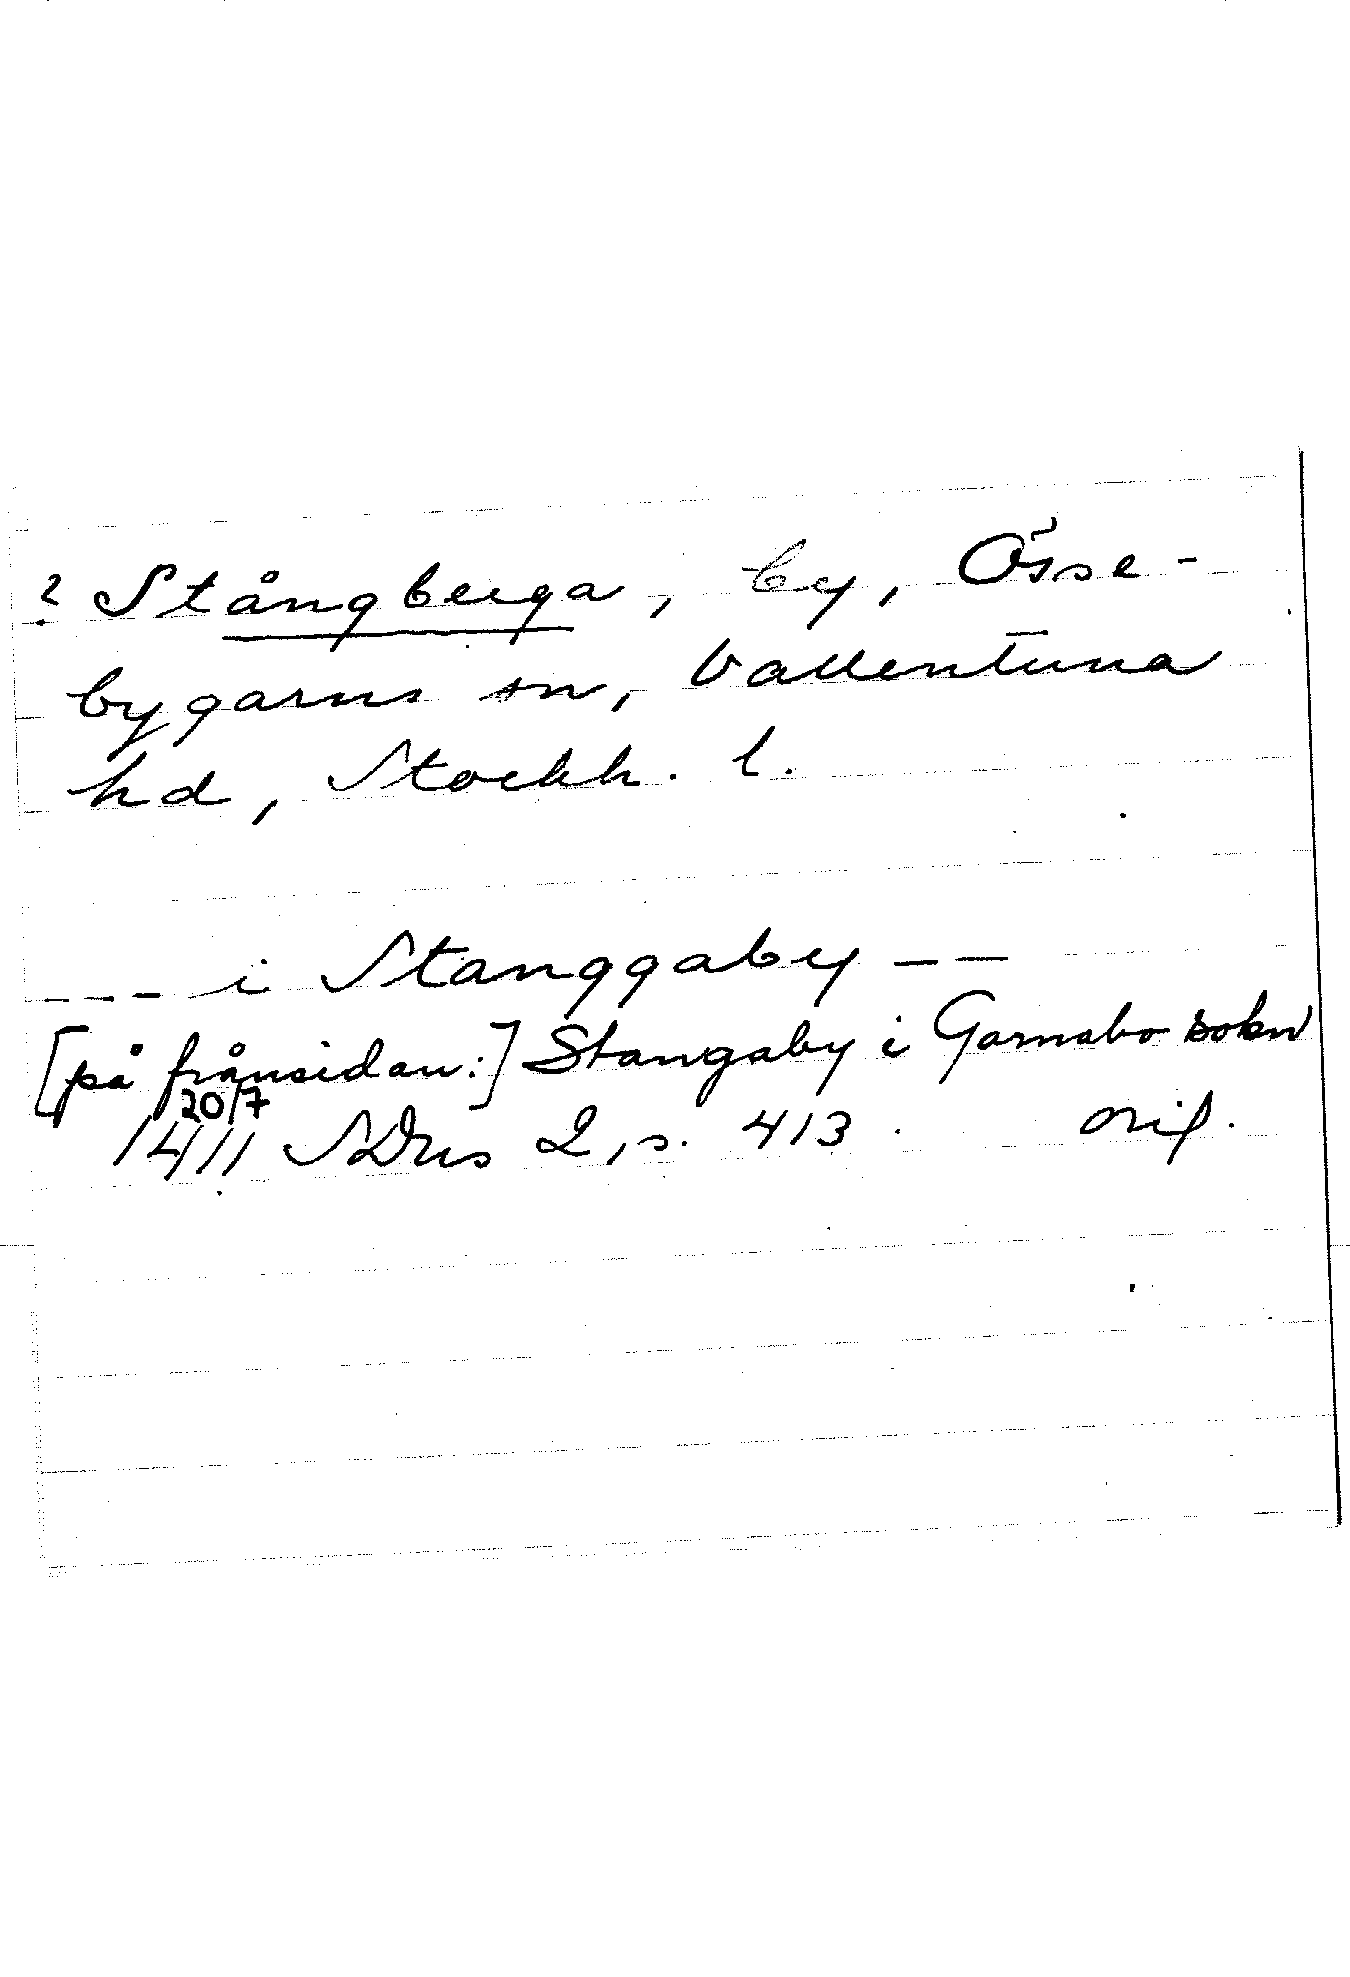 ? Stångberga, by, Össe-
bygarns sn, Vallentuna
hd, Stockh. l.
---- i Stanggaby --
[på frånsidan:] Stangaby i Garnsbo sokn
20/7
1411 SDns 2, s. 413. orig.